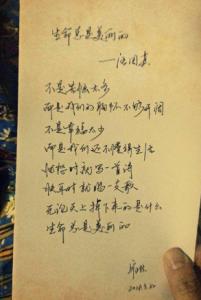 生命总是美丽的
——汪国真
不是苦恼太多
而是我们的胸怀不够开阔
不是幸福太少
而是我们还不懂得生活
忧愁时就写一首诗
快乐时就唱一支歌
无论天上掉下来的是什么
生命总是美丽的